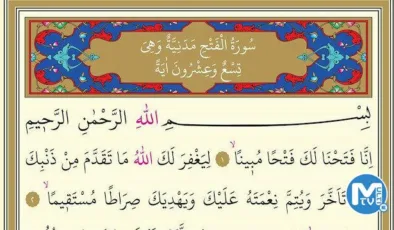 سُورَةُ الْفَتْحِ مَدَنِيَّةٌ وَهِىَ
تِسْعٌ وَعِشْرُونَ اٰيَةً
بِسْمِ اللهِ الرَّحْمٰنِ الرَّحٖيمِ
اِنَّا فَتَحْنَا لَكَ فَتْحًا مُبٖينًاۙ ١ لِيَغْفِرَ لَكَ اللهُ مَا تَقَدَّمَ مِنْ ذَنْبِكَ
تَاَخَّرَ وَيُتِمَّ نِعْمَتَهُ عَلَيْكَ وَيَهْدِيَكَ صِرَاطًا مُسْتَقٖيمًاۙ ٢
TV